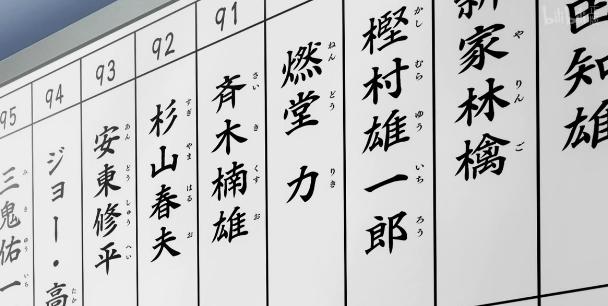 知雄
新家林檎
や りん ご
樫村雄一郎
かし むら ゆう いち ろう
燃堂 力
ねん どう りき
91
斉木楠雄
さい き くす お
92
杉山春夫
すぎ やま はる お
93
安東修平
あん どう しゅう へい
94
ジョー・高
たか
95
三鬼佑一
み き ゆう いち